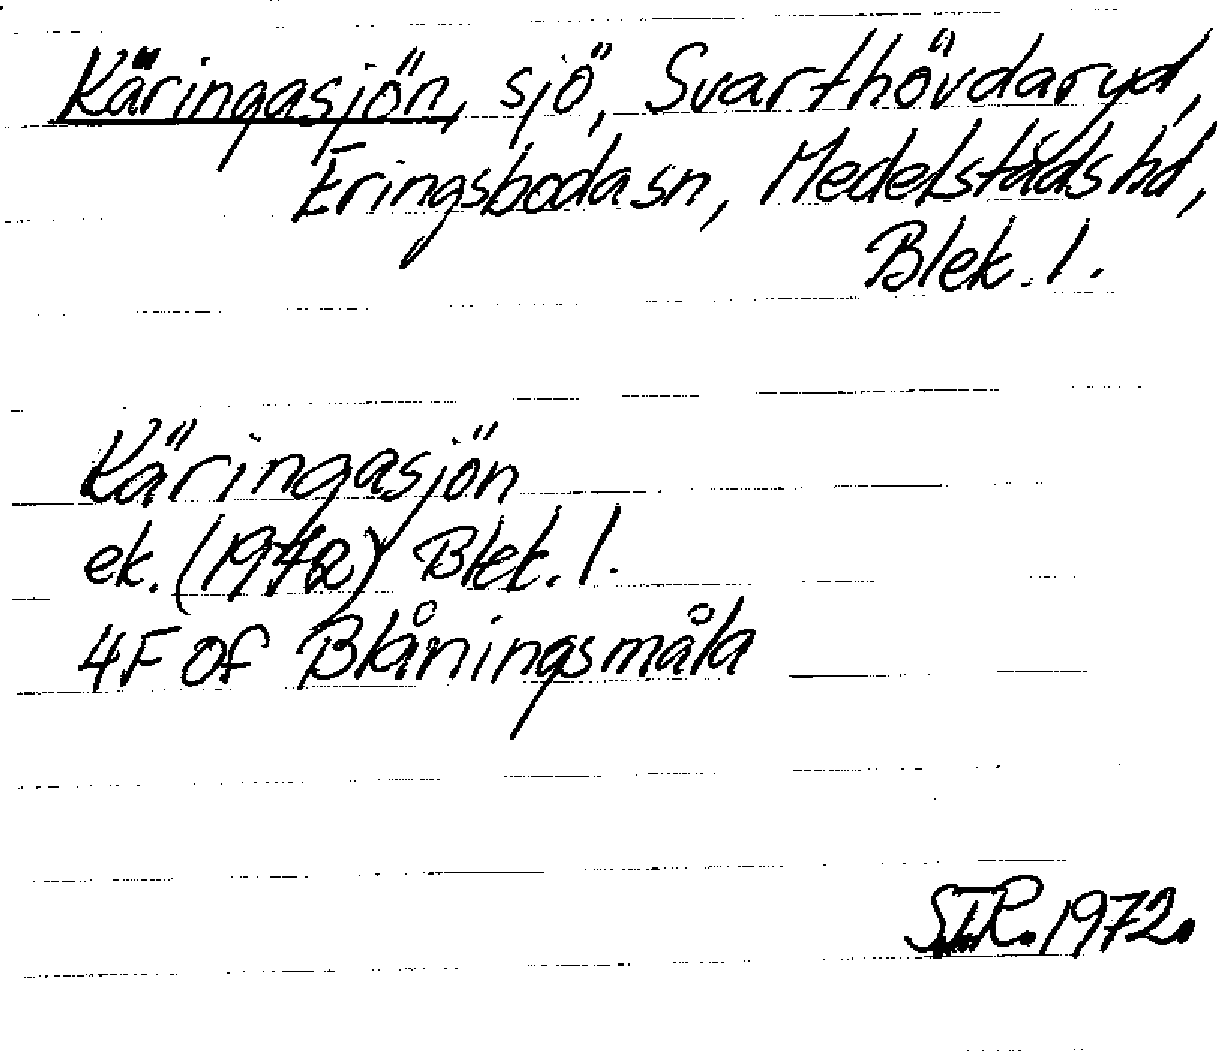 Käringasjön, sjö, Svarthövdaryd,
Eringsboda sn, Medelstads hd,
Blek. l.
Käringasjön
ek. (1972) Blek. l.
4F Of Blåningsmåla
1972.